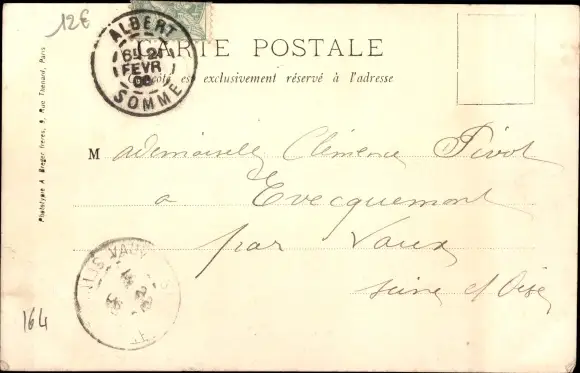 12€
ALBERT
6 21
FEVR
06
SOMME
CARTE POSTALE
côté est exclusivement réservé à l'adresse
Phototypie A. Breger frères, 9, Rue Thénard, Paris
Mademoiselle Clémence Pivot
a Evecquemont
par Vaux
seine et Oise
VAUX
164